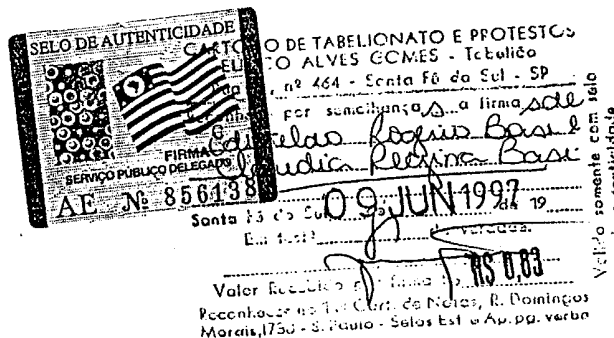 SELO DE AUTENTICIDADE
FIRMA
SERVIÇO PÚBLICO DELEGADO
AE Nº 856138
O DE TABELIONATO E PROTESTOS
CO ALVES GOMES - Tabelião
nº 464 - Santa Fé do Sul - SP
por semelhança S a firma S de
Rogério Basi e
Claudia Regina Basi
Santa Fé do Sul, 09 JUN 1997 de 19
Em test. verdade.
Valor Recebido firma R$ 0,83
Reconhecer no Cart. de Notas, R. Domingos
Morais, - S. Paulo - Selos Est. e Ap. pg. verba
Válido somente com selo
autenticidade